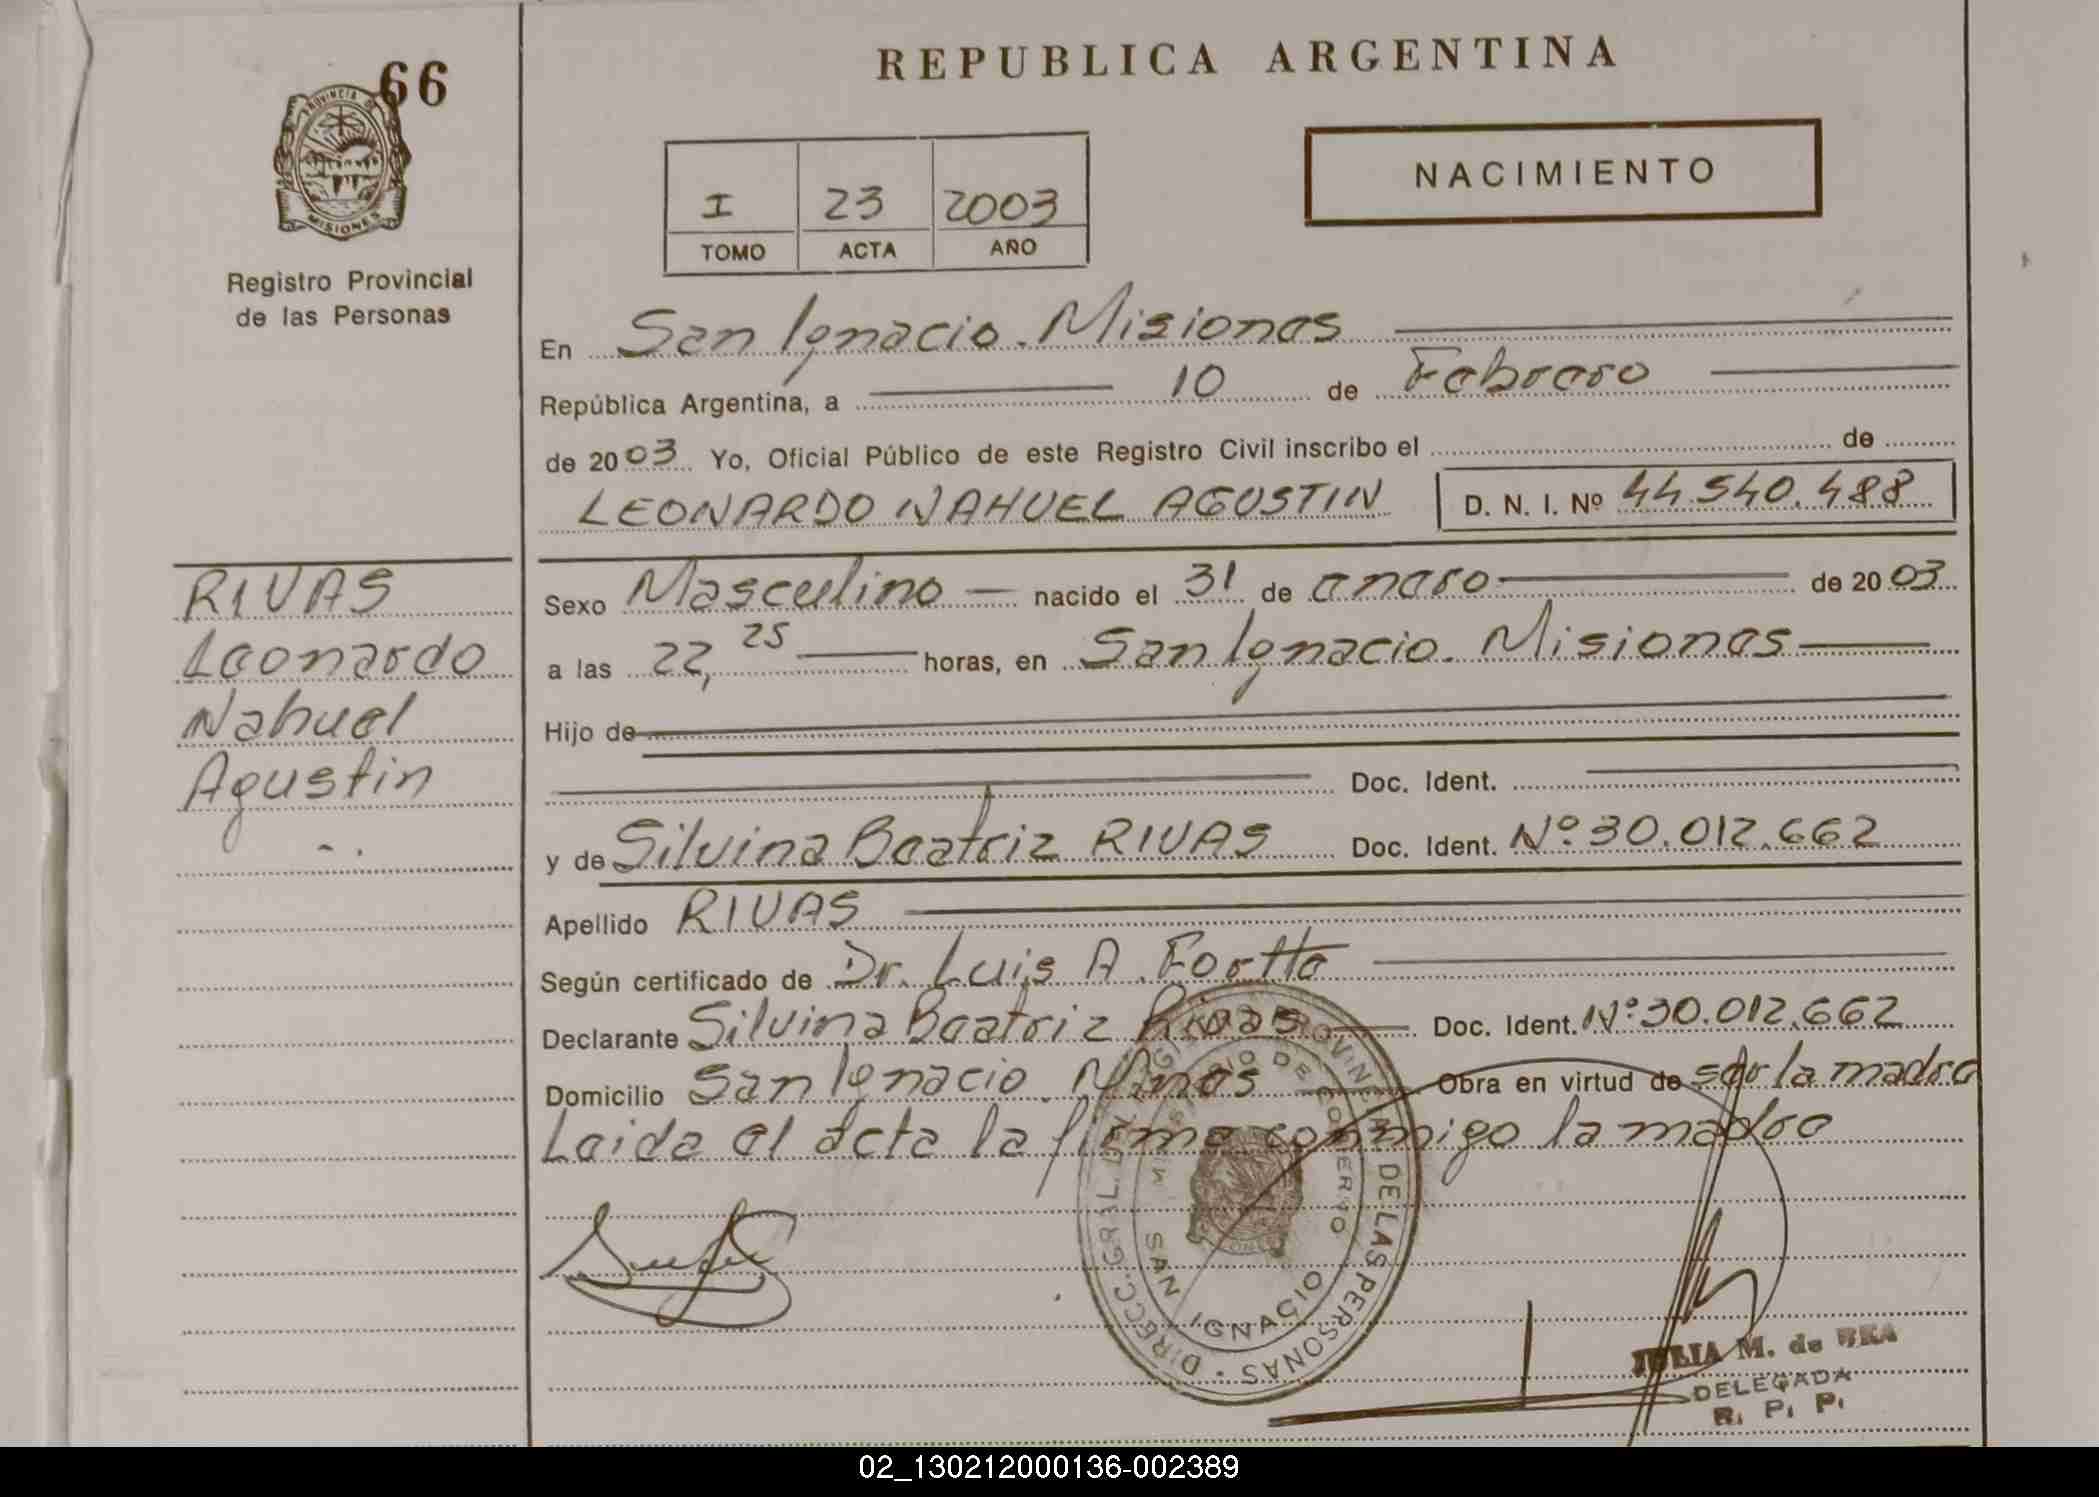 66
PROVINCIA DE
MISIONES
Registro Provincial
de las Personas
REPUBLICA ARGENTINA
NACIMIENTO
I 23 2003
TOMO ACTA AÑO
En San Ignacio. Misiones
República Argentina, a 10 de Febrero
de 2003 Yo, Oficial Público de este Registro Civil inscribo el de
LEONARDO NAHUEL AGUSTIN D. N. I. Nº 44.540.488
RIVAS
Leonardo
Nahuel
Agustin
Sexo Masculino nacido el 31 de enero de 2003
a las 22,25 horas, en San Ignacio. Misiones
Hijo de
Doc. Ident.
y de Silvina Beatriz RIVAS Doc. Ident. Nº 30.012.662
Apellido RIVAS
Según certificado de Dr. Luis A.
Declarante Silvina Beatriz Rivas Doc. Ident. Nº 30.012.662
Domicilio San Ignacio. Mnes Obra en virtud de ser la madre
Leida el acta la firma conmigo la madre
DIRECC. GRAL. DEL REGISTRO PROVINCIAL DE LAS PERSONAS
MINISTERIO DE GOBIERNO
SAN IGNACIO
JULIA M. de
DELEGADA
R. P. P.
02_130212000136-002389